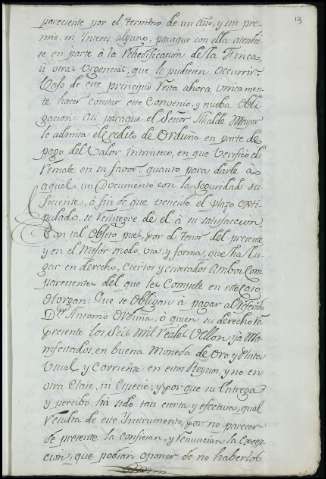 13
pareciente por el termino de un año, y sin pre-
mio ni Interes alguno, para que con ella atendie-
se en parte à la Redificacion de la Finca,
ù otras urgencias, que le pudieran occurrir:
Vaso de este principio Trata ahora unicamente
hacer constar este Convenio, y nueba Obli-
gacion: Asi para que el Señor Alcalde Mayor
le admita el credito de Orduña en parte de
pago del valor intrinseco, en que verifico el
Remate en su favor, quanto para darle à
aquel un Documento con la seguridad su-
ficiente, à fin de que vencido el plazo esti-
pulado, se reintegre de el à su satisfaccion
Con tal Objeto, pues, por el tenor del presente
y en el mejor modo, via y forma, que ha Lu-
gar en derecho, ciertos y enterados ambos Com-
parecientes del que les Compete en este caso
Otorgan: Que se Obligan à pagar al referido
Dn. Antonio Orduña, ò quien su derecho re-
presente los seis mil Reales Vellon, ya Ma-
nifestados, en buena Moneda de Oro y Plata
usual y Corriente en estos Reynos, y no en
otra Clase, ni Especie; y porque su Entrega
y percibo ha sido tan cierta y efectiva, qual
resulta de este Instrumento, por no parecer
de presente, la confiesan, y renuncian la Excep-
cion, que podian oponer de no haberlos